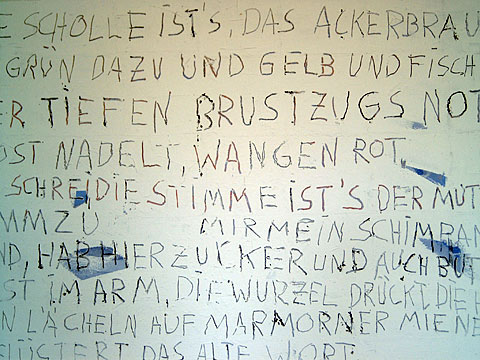 E SCHOLLE IST'S, DAS ACKERBRAU
GRÜN DAZU UND GELB UND FISCH
ER TIEFEN BRUSTZUGS NOT
OST NADELT, WANGEN ROT,
SCHREI, DIE STIMME IST'S DER MÜT
MM ZU MIR MEIN SCHIMPAN
ND, HAB HIER ZUCKER UND AUCH BUT
ST IM ARM, DIE WURZEL DRÜCKT DIE
N LÄCHELN AUF MARMORNER MIENE
FLÜSTERT DAS ALTE WORT